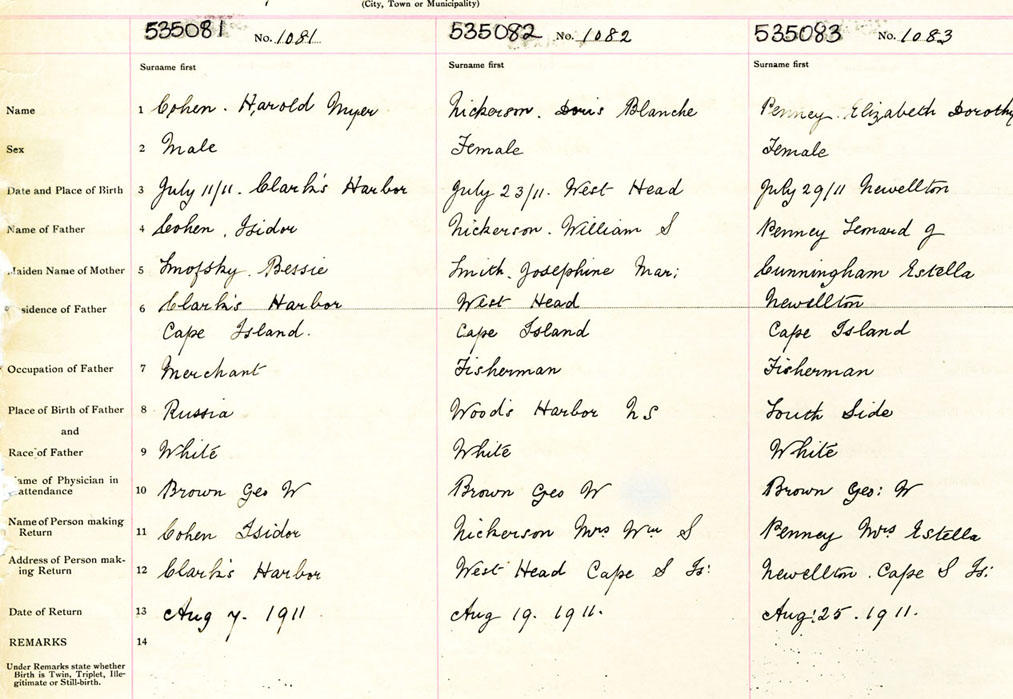 (City, Town or Municipality)
535081 No. 1081 535082 No. 1082 535083 No. 1083
Surname first Surname first Surname first
Name 1 Cohen. Harold Myer Nickerson. Doris Blanche Penney. Elizabeth Dorothy
Sex 2 Male Female Female
Date and Place of Birth 3 July 11/11. Clark's Harbor July 23/11. West Head July 29/11 Newellton
Name of Father 4 Cohen, Isidor Nickerson. William S Penney Lemard J
Maiden Name of Mother 5 Smofsky. Bessie Smith. Josephine Mar; Cunningham Estella
sidence of Father 6 Clark's Harbor West Head Newellton
Cape Island. Cape Island Cape Island
Occupation of Father 7 Merchant Fisherman Fisherman
Place of Birth of Father 8 Russia Wood's Harbor NS South Side
and
Race of Father 9 White White White
ame of Physician in
attendance 10 Brown Geo W Brown Geo W Brown Geo: W
Name of Person making
Return 11 Cohen Isidor Nickerson Mrs Wm S Penney Mrs Estella
Address of Person mak-
ing Return 12 Clark's Harbor West Head Cape S Is: Newellton. Cape S Is:
Date of Return 13 Aug 7. 1911 Aug 19. 1911. Aug: 25. 1911.
REMARKS 14
Under Remarks state whether
Birth is Twin, Triplet, Ille-
gitimate or Still-birth.